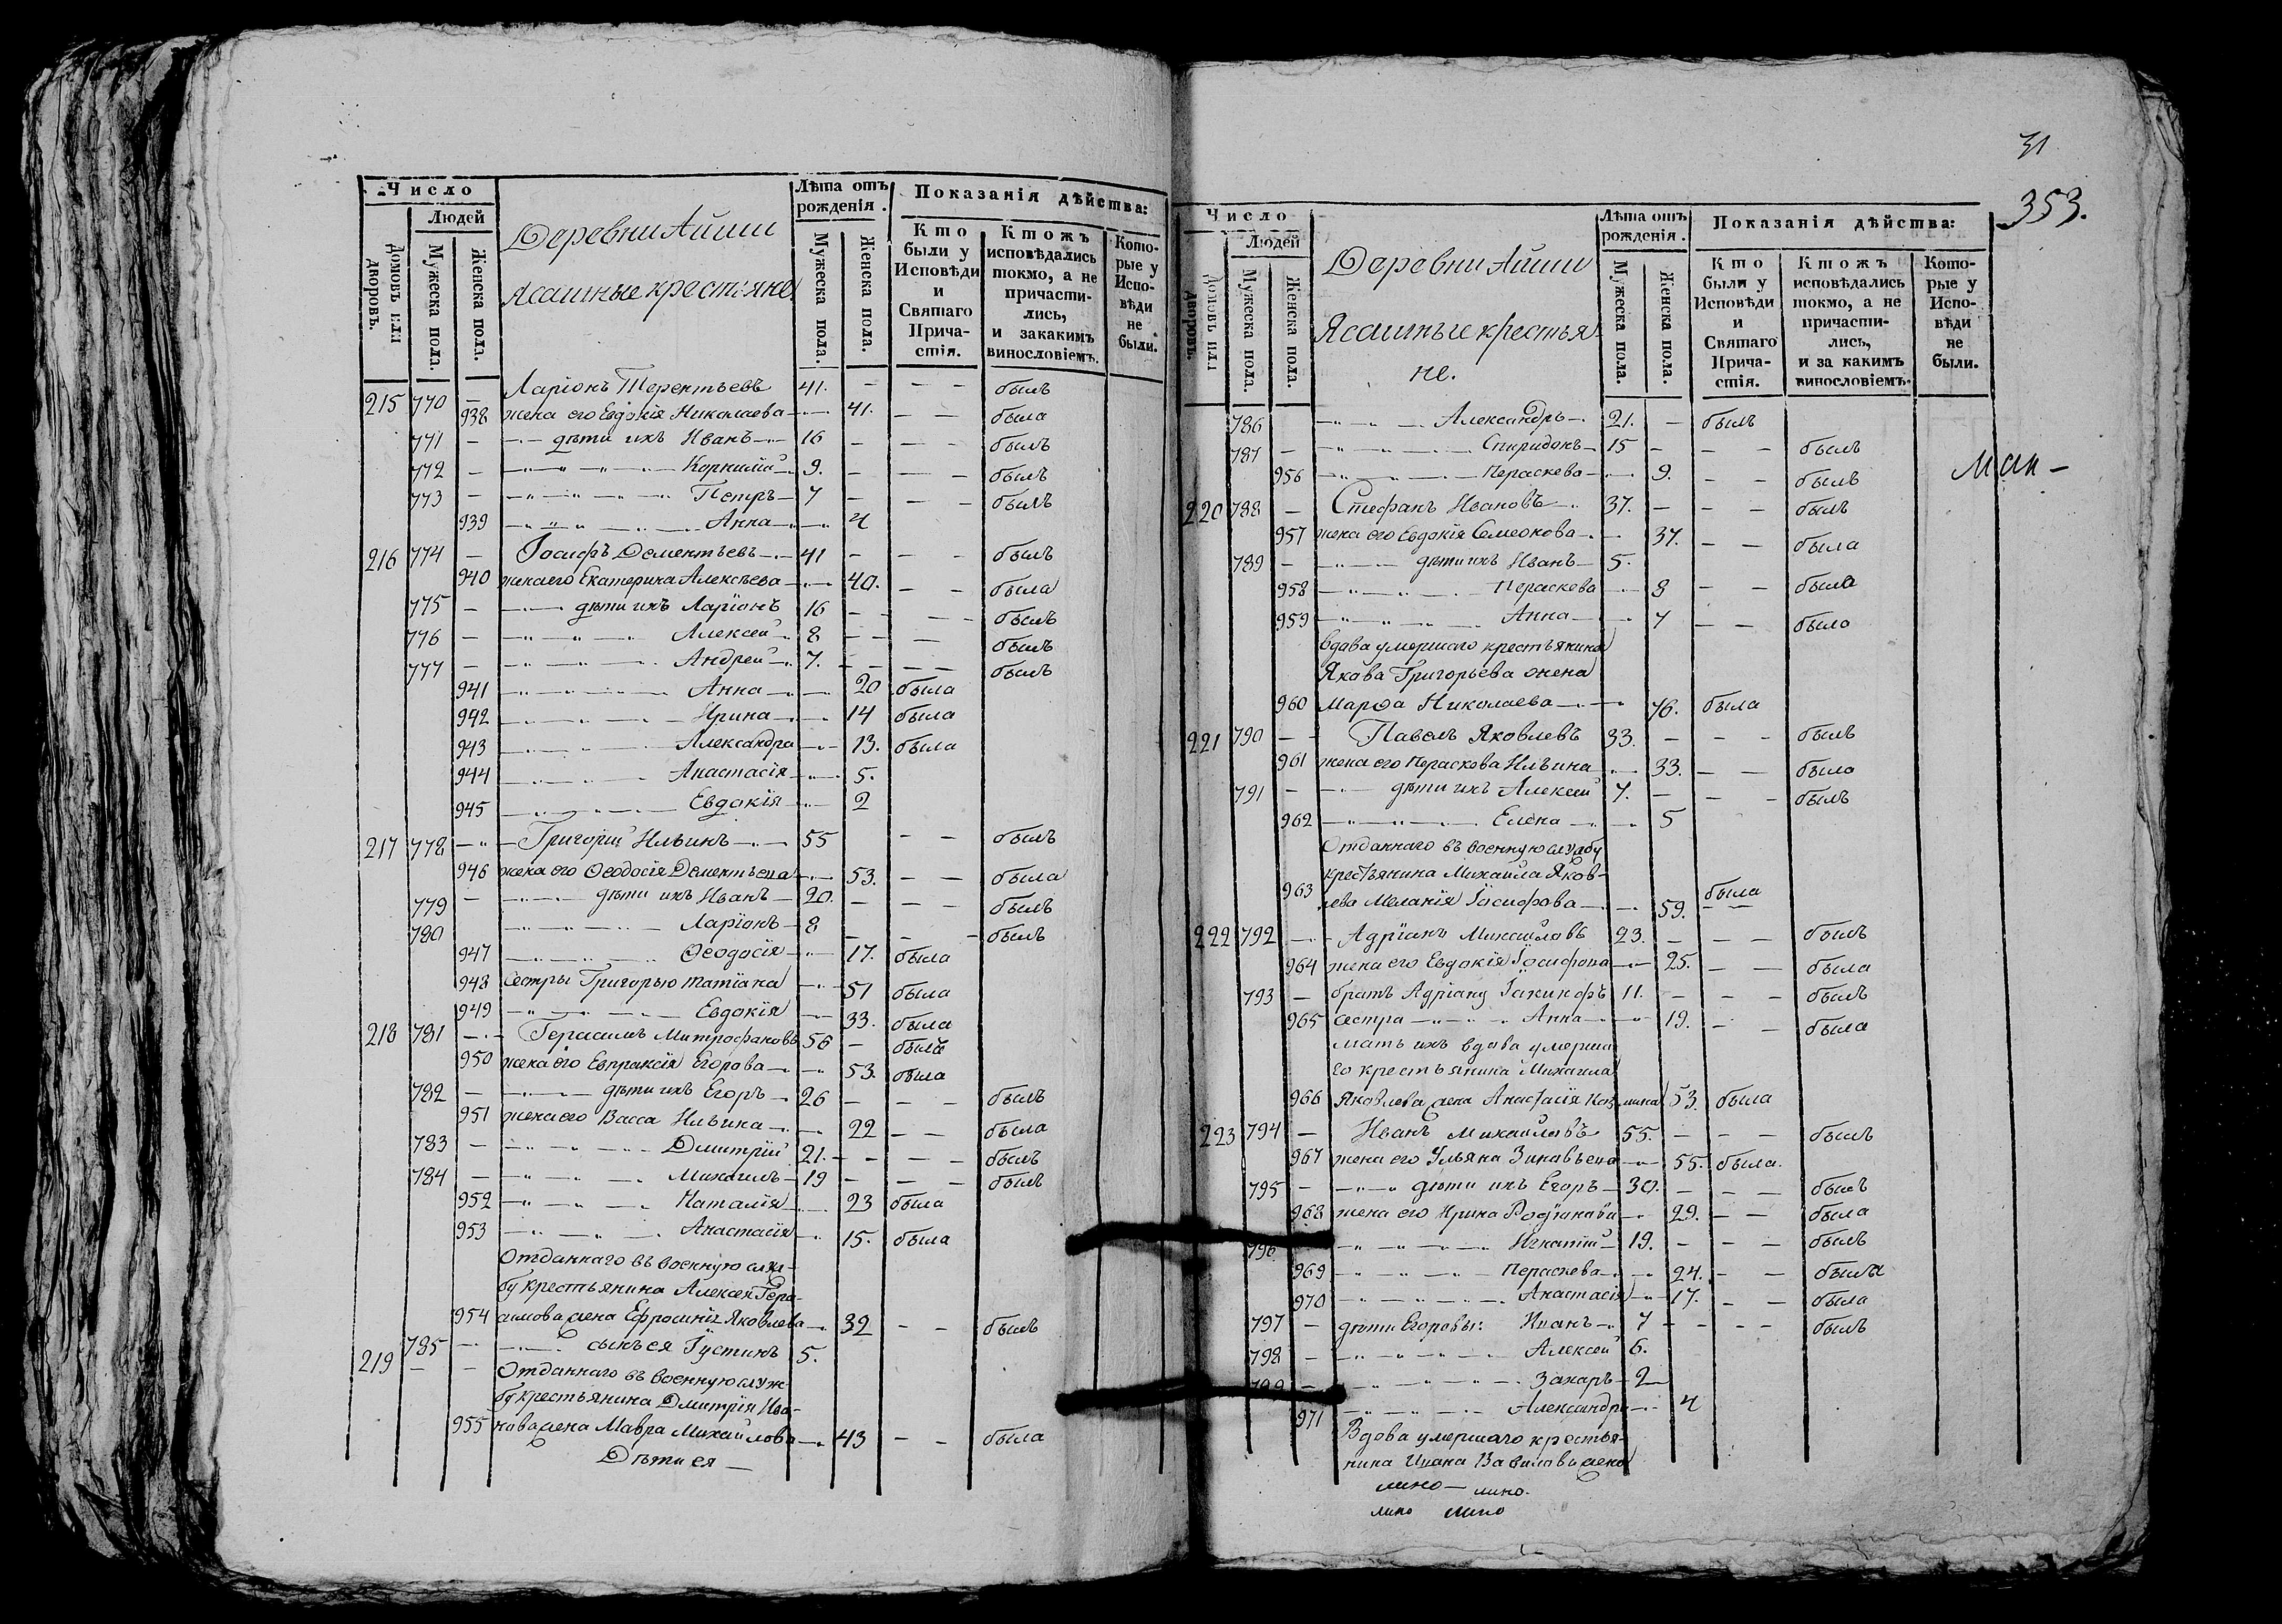 Число
Людей
Домовъ или дворовъ.
Мужеска пола.
Женска пола.
Деревни Айши
Ясашные крестьяне
Лѣта отъ рожденія.
Мужеска пола.
Женска пола.
Показанія дѣйства:
Кто были у Исповѣди и Святаго Причастія.
Ктожъ исповѣдались токмо, а не причастились, и закакимъ винословіемъ.
Которые у Исповѣди не были.
215 770 — Ларіонъ Терентьевъ 41. — — — былъ
938 жена его Евдокія Николаева 41. — — была
771 — дѣти ихъ Иванъ 16 — — — былъ
772 — Корнилій 9. — — — былъ
773 — Петръ 7 — — — былъ
939 Анна 4
216 774 — Іосифъ Дементьевъ 41 — — — былъ
940 жена его Екатерина Алексѣева 40. — — была
775 — дѣти ихъ Ларіонъ 16 — — — былъ
776 — Алексей 8 — — — былъ
777 — Андрей 7. — — — былъ
941 Анна 20 была
942 Ирина 14 была
943 Александра 13. была
944 Анастасія 5.
945 Евдокія 2
217 778 — Григорій Ильинъ 55 — — былъ
946 жена его Ѳеодосія Дементьева 53. — — была
779 — дѣти ихъ Иванъ 20. — — — былъ
780 Ларіонъ 8 — — — былъ
947 Ѳеодосія 17. была
948 Сестры Григорью Татіана 51 была
949 Евдокія 33. была
218 781 — Герасимъ Митрофановъ 56 — былъ
950 жена его Евпраксія Егорова 53. была
782 — дѣти ихъ Егоръ 26 — — — былъ
951 жена его Васса Ильина 22 — — была
783 — Дмитрій 21. — — — былъ
784 — Михаилъ 19 — — — былъ
952 Наталія 23 была
953 Анастасія 15. была
Отданнаго въ военную служ-
бу крестьянина Алексея Гера-
954 симова жена Ефросинія Яковлева 32 — — былъ
785 — сынъ ея Іустинъ 5.
219 — — Отданнаго въ военную служ-
бу крестьянина Дмитрія Ива-
955 нова жена Мавра Михайлова 43 — — была
Дѣти ея —
31
353.
Число
Людей
Домовъ или дворовъ.
Мужеска пола.
Женска пола.
Деревни Айши
Ясашные крестья-
не.
Лѣта отъ рожденія.
Мужеска пола.
Женска пола.
Показанія дѣйства:
Кто были у Исповѣди и Святаго Причастія.
Ктожъ исповѣдались токмо, а не причастились, и за какимъ винословіемъ.
Которые у Исповѣди не были.
786 Александръ 21. — былъ
787 — Спиридонъ 15 — — — былъ
956 Параскева 9. — — былъ
220 788 — Стефанъ Ивановъ 37. — — — былъ
957 жена его Евдокія Семенова 37. — — была
789 — дѣти ихъ Иванъ 5.
958 Параскева 8 — — была
959 Анна 7 — — была
вдава умершаго крестьянина
Якава Григорьева жена
960 Марѳа Николаева 76. была
221 790 — Павелъ Яковлевъ 33. — — — былъ
961 жена его Параскева Ильина 33. — — была
791 — дѣти ихъ Алексей 7. — — — былъ
962 Елена 5
Отданнаго въ военную службу
крестьянина Михаила Яков-
963 лева Меланія Іосифова 59. была
222 792 — Адріанъ Михаиловъ 23. — — — былъ
964 жена его Евдокія Іосифова 25. — — была
793 — братъ Адріану Іакинфъ 11. — — — былъ
965 сестра Анна 19. — — была
мать ихъ вдова умерша
го крестьянина Михаила
966 Яковлева жена Анастасія Козмина 53. была
223 794 — Иванъ Михаиловъ 55. — — — былъ
967 жена его Ульяна Зиновьева 55. была.
795 — дѣти ихъ Егоръ 30. — — — былъ
968 жена его Ирина Родіонова 29. — — была
796 Игнатій 19. — — — былъ
969 Параскева 24. — — была
970 Анастасія 17. — — была
797 — дѣти Егоровы: Иванъ 7 — — — былъ
798 — Алексей 6.
799 — Захаръ 2
971 Александра 4
Вдова умершаго крестья-
нина Ивана Вавилова жена